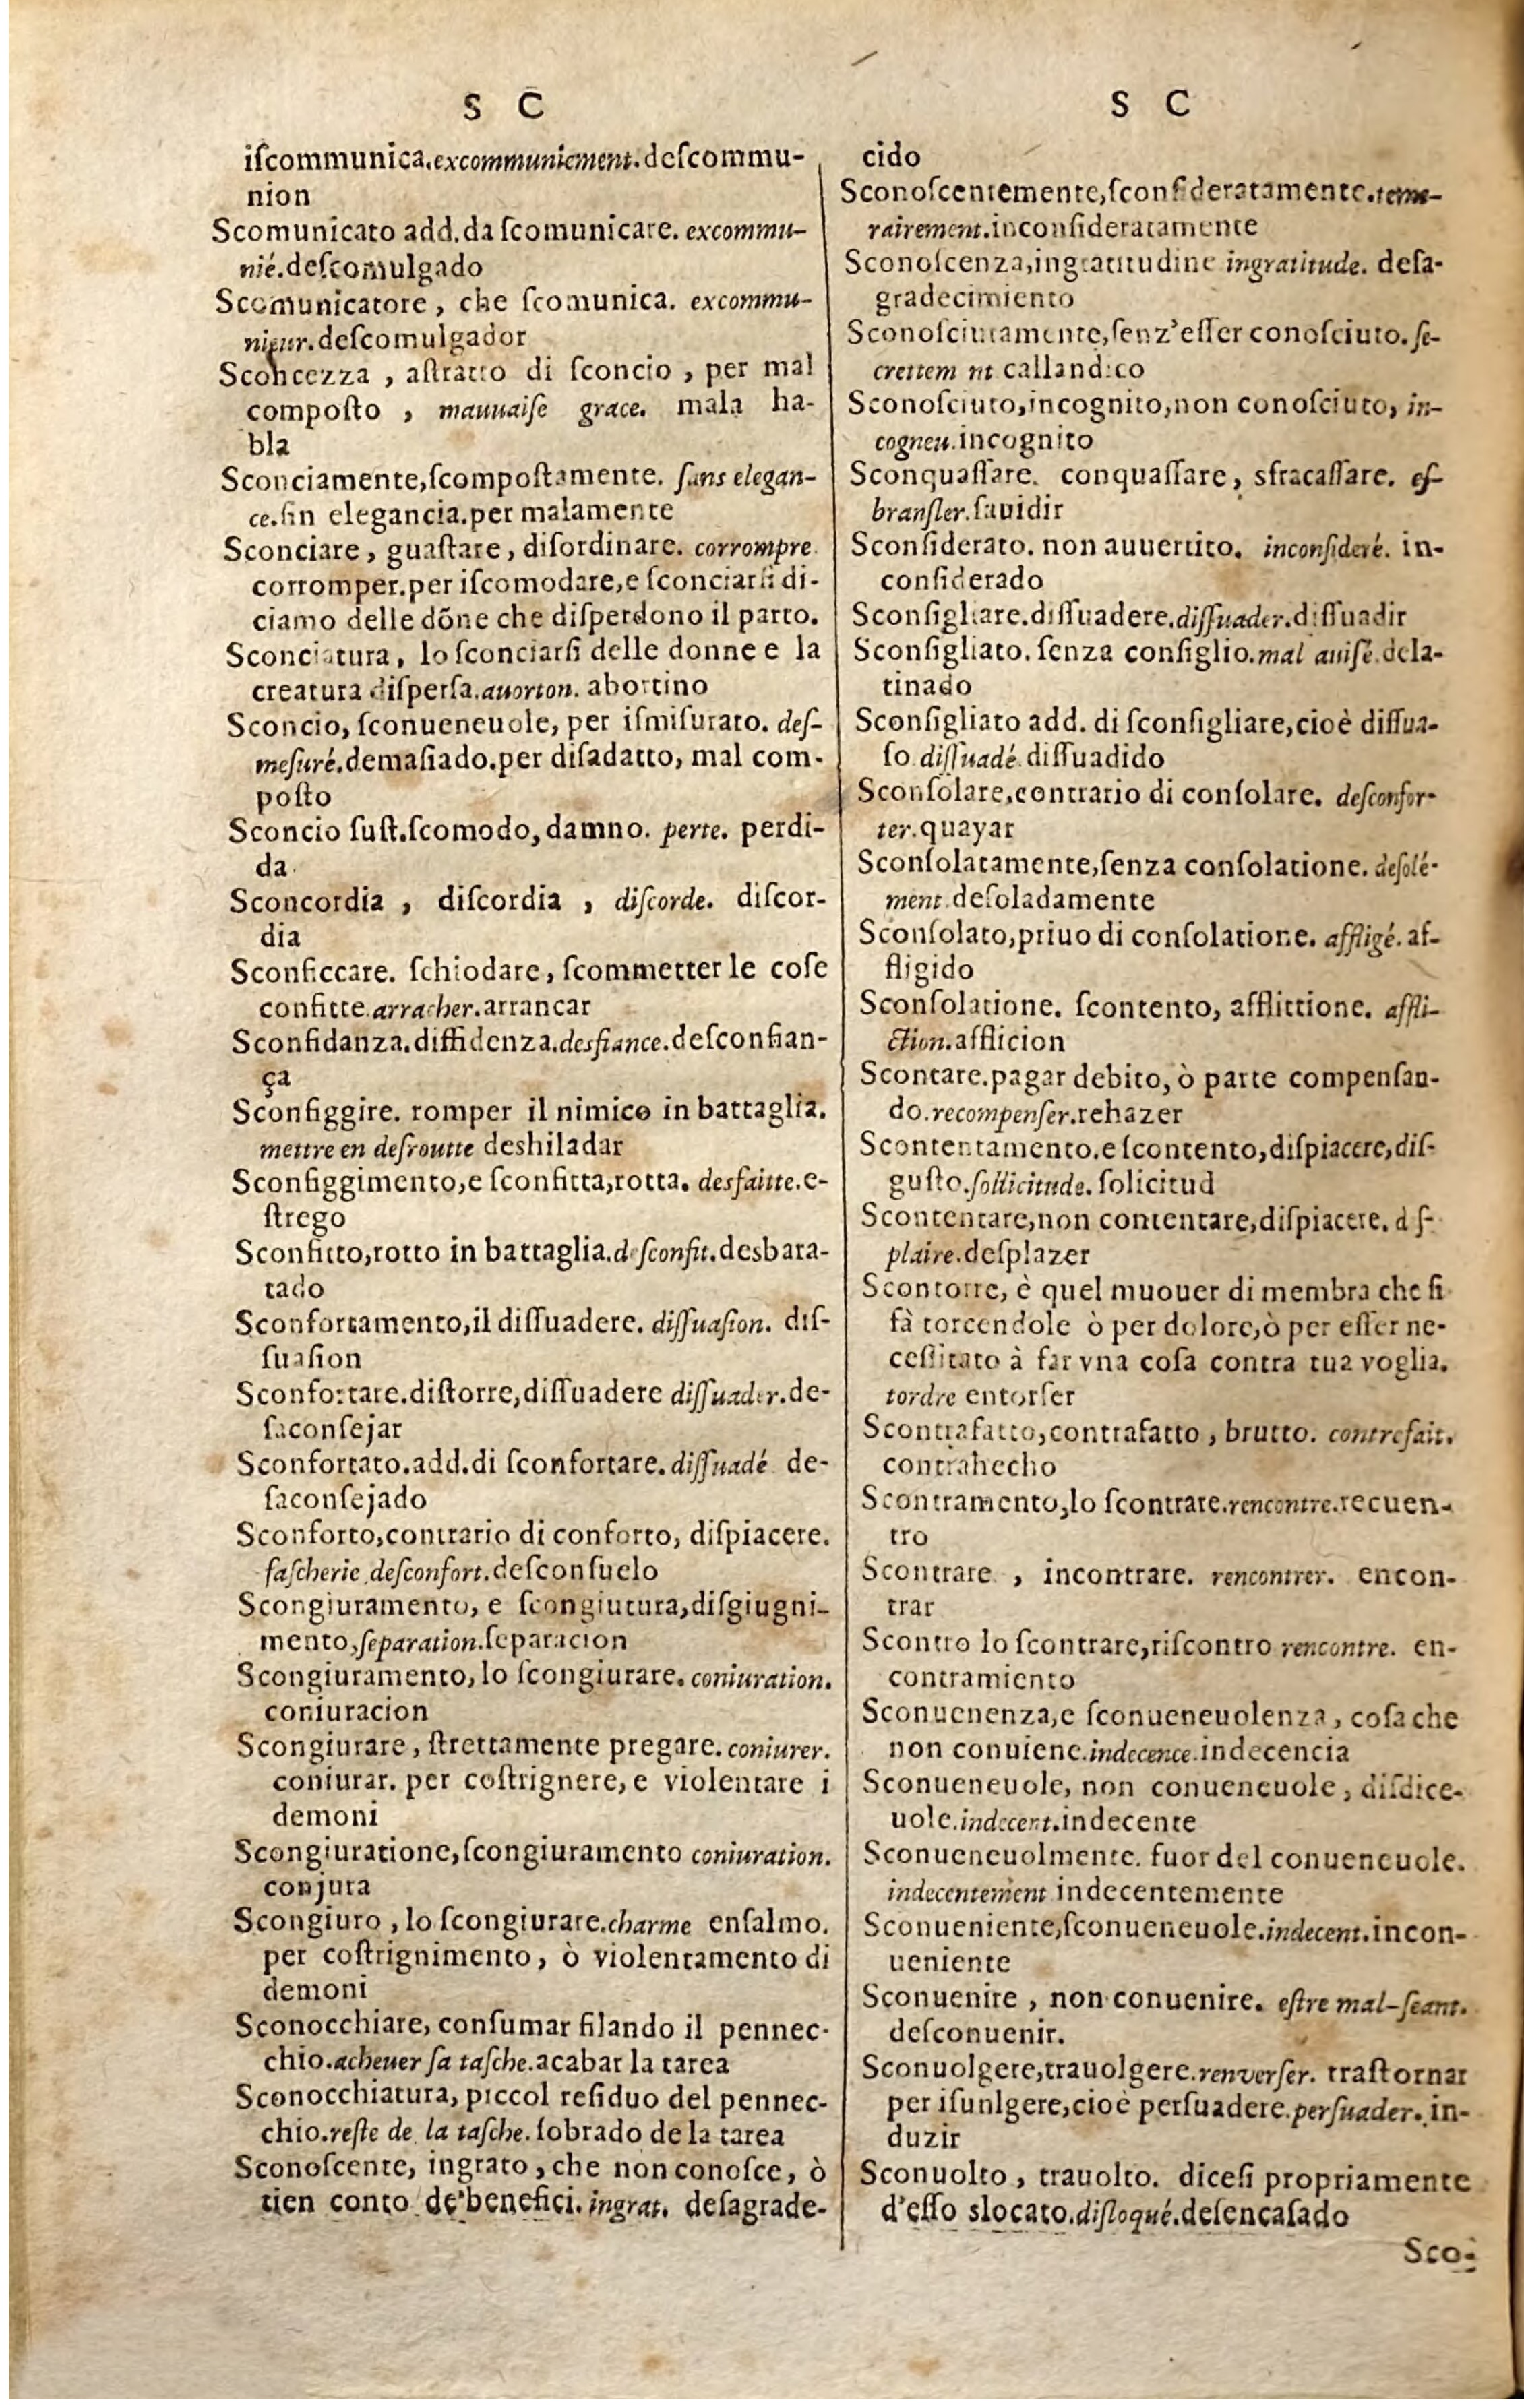 S C
iſcommunica.excommuniement.deſcommu-
nion
Scomunicato add.da ſcomunicare. excommu-
nié.deſcomulgado
Scomunicatore, che ſcomunica. excommu-
nieur.deſcomulgador
Sconcezza, aſtratto di ſconcio, per mal
compoſto, mauuaiſe grace. mala ha-
bla
Sconciamente,ſcompoſtamente. ſans elegan-
ce.ſin elegancia.per malamente
Sconciare, guaſtare, diſordinare. corrompre.
corromper.per iſcomodare,e ſconciarſi di-
ciamo delle dõne che diſperdono il parto.
Sconciatura, lo ſconciarſi delle donne e la
creatura diſperſa.auorton. abortino
Sconcio, ſconueneuole, per iſmiſurato. deſ-
meſuré.demaſiado.per diſadatto, mal com-
poſto
Sconcio ſuſt.ſcomodo, damno. perte. perdi-
da
Sconcordia, diſcordia, diſcorde. diſcor-
dia
Sconficcare. ſchiodare, ſcommetter le coſe
confitte.arracher.arrancar
Sconfidanza.diffidenza.desfiance.deſconfian-
ça
Sconfiggire. romper il nimico in battaglia.
mettre en deſroutte deshiladar
Sconfiggimento,e ſconfitta,rotta. desfaitte.e-
ſtrego
Sconfitto,rotto in battaglia.deſconfit.desbara-
tado
Sconfortamento,il diſſuadere. diſſuaſion. diſ-
ſuaſion
Sconfortare.diſtorre,diſſuadere diſſuader.de-
ſaconſejar
Sconfortato.add.di ſconfortare.diſſuadé de-
ſaconſejado
Sconforto,contrario di conforto, diſpiacere.
faſcherie.deſconfort.deſconſuelo
Scongiuramento, e ſcongiutura,diſgiugni-
mento,ſeparation.ſeparacion
Scongiuramento, lo ſcongiurare. coniuration.
coniuracion
Scongiurare, ſtrettamente pregare. coniurer.
coniurar. per coſtrignere, e violentare i
demoni
Scongiuratione,ſcongiuramento coniuration.
conjura
Scongiuro, lo ſcongiurare.charme enſalmo.
per coſtrignimento, ò violentamento di
demoni
Sconocchiare, conſumar filando il pennec-
chio.acheuer ſa taſche.acabar la tarea
Sconocchiatura, piccol reſiduo del pennec-
chio.reſte de la taſche.ſobrado de la tarea
Sconoſcente, ingrato, che non conoſce, ò
tien conto de'benefici.ingrat. deſagrade-
S C
cido
Sconoſcentemente,ſconſideratamente.teme-
rairement.inconſideratamente
Sconoſcenza,ingratitudine ingratitude. deſa-
gradecimiento
Sconoſciutamente,ſenz'eſſer conoſciuto.ſe-
crettem nt callandico
Sconoſciuto,incognito,non conoſciuto, in-
cogneu.incognito
Sconquaſſare. conquaſſare, sfracaſſare. eſ-
branſler.ſauidir
Sconſiderato. non auuertito. inconſideré. in-
conſiderado
Sconſigliare.diſſuadere.diſſuader.diſſuadir
Sconſigliato. ſenza conſiglio.mal auiſé.dela-
tinado
Sconſigliato add. di ſconſigliare,cioè diſſua-
ſo diſſuadé diſſuadido
Sconſolare,contrario di conſolare. deſconfor-
ter.quayar
Sconſolatamente,ſenza conſolatione. deſolé-
ment.deſoladamente
Sconſolato,priuo di conſolatione. affligé. af-
fligido
Sconſolatione. ſcontento, afflittione. affli-
ction.afflicion
Scontare.pagar debito, ò parte compenſan-
do.recompenſer.rehazer
Scontentamento.e ſcontento,diſpiacere,diſ-
guſto.ſollicitude.ſolicitud
Scontentare,non contentare,diſpiacere. d ſ-
plaire.deſplazer
Scontorre, è quel muouer di membra che ſi
fà torcendole ò per dolore,ò per eſſer ne-
ceſſitato à far vna coſa contra tua voglia.
tordre entorſer
Scontrafatto,contrafatto, brutto. contrefait.
contrahecho
Scontramento,lo ſcontrare.rencontre.recuen-
tro
Scontrare, incontrare. rencontrer. encon-
trar
Scontro lo ſcontrare,riſcontro rencontre. en-
contramiento
Sconuenenza,e ſconueneuolenza, coſa che
non conuiene.indecence.indecencia
Sconueneuole, non conueneuole, diſdice-
uole.indecent.indecente
Sconueneuolmente. fuor del conueneuole.
indecentement indecentemente
Sconueniente,ſconueneuole.indecent.incon-
ueniente
Sconuenire, non conuenire. eſtre mal-ſeant.
deſconuenir.
Sconuolgere,trauolgere.renverſer. traſtornar
per iſunlgere,cioè perſuadere.perſuader. in-
duzir
Sconuolto, trauolto. diceſi propriamente
d'eſſo slocato.diſloqué.deſencaſado
Sco-